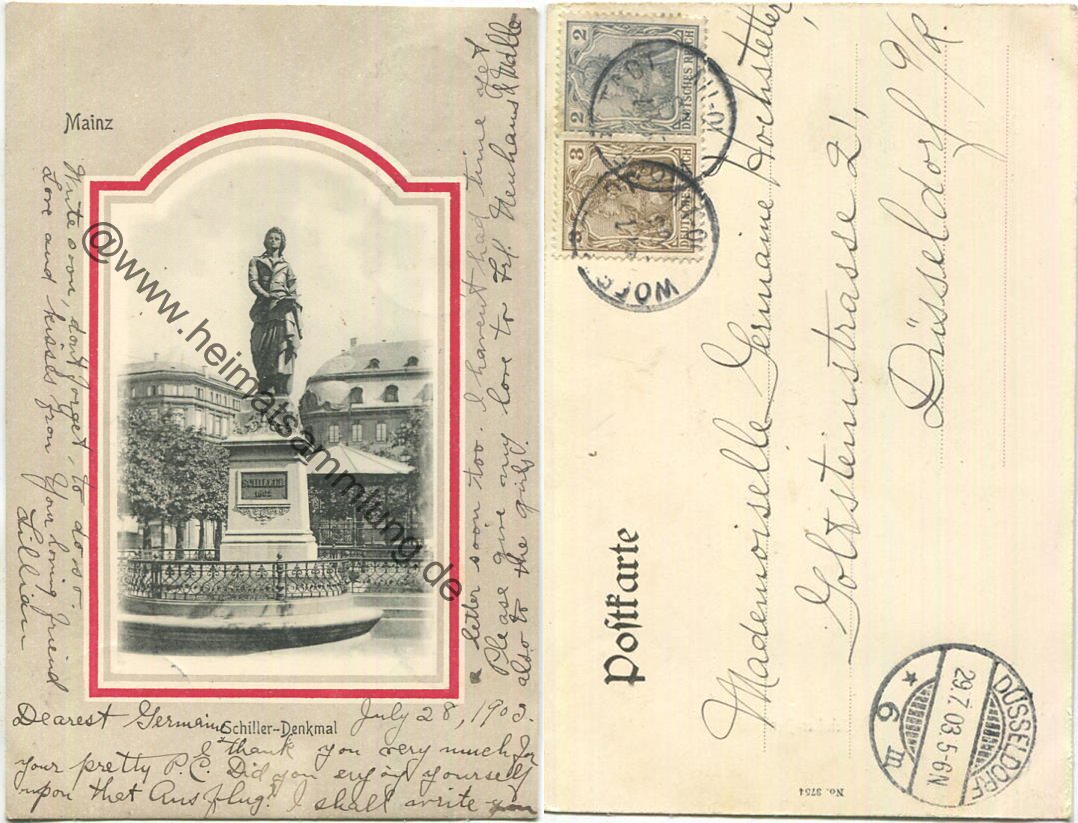 Mainz
Dearest Germaine
July 28, 1903.
Schiller-Denkmal
I thank you very much for
your pretty P. C. Did you enjoy yourself
upon thet Ausflug? I shall write you
a letter soon too. I havent had time yet
Please give my love to Frl. Neuhaus & Malle
also to the girls.
Write soon, dont forget, to do so.
Love and kisses from Your loving friend
Lillian
SCHILLER
1862
@www.heimatsammlung.de
2 DEUTSCHES REICH 2
3 DEUTSCHES REICH
Postkarte
Mademoiselle Germaine Hochstetter,
Golfsteinstrasse 21,
Düsseldorf a/R.
DÜSSELDORF
29.7.03.5-6N.
* 6 m
No. 3754